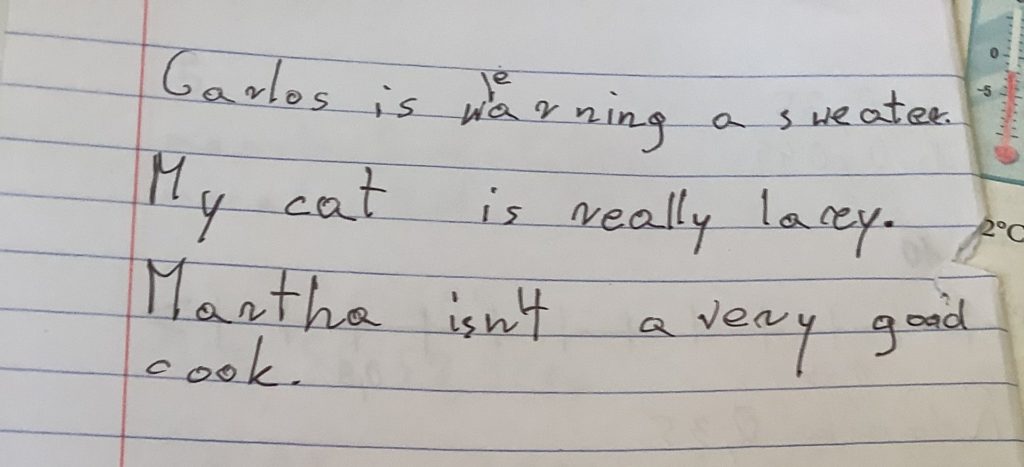 Carlos is wearning a sweater.
My cat is really lacey.
Martha isn't a very good
cook.
0
-5
2°C